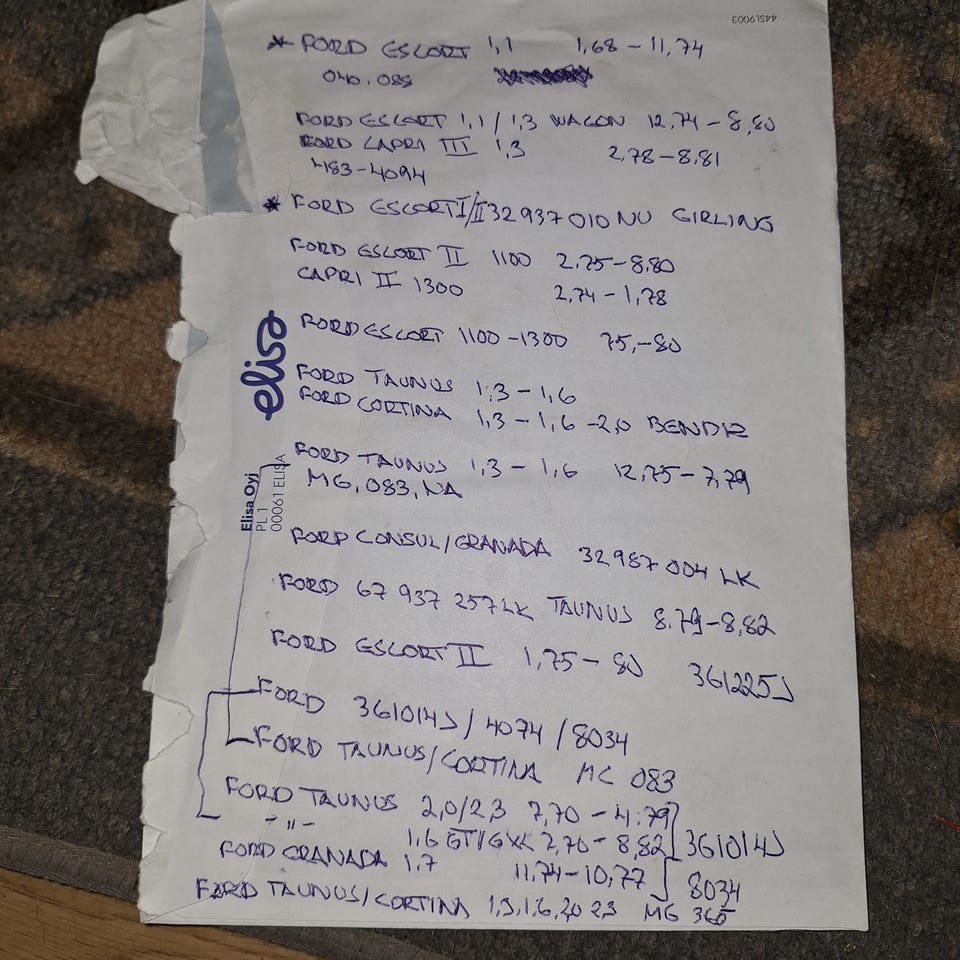 44SL9003
* FORD ESCORT 1,1 1,68 - 11,74
040.088
FORD ESCORT 1,1 / 1,3 WAGON 12,74 - 8,80
FORD CAPRI III 1,3 2,78 - 8,81
483-4094
* FORD ESCORT I/II 32 937 010 NU GIRLING
FORD ESCORT II 1100 2,75 - 8,80
CAPRI II 1300 2,74 - 1,78
FORD ESCORT 1100 - 1300 75,-80
FORD TAUNUS 1,3 - 1,6
FORD CORTINA 1,3 - 1,6 -2,0 BENDIX
FORD TAUNUS 1,3 - 1,6 12,75 - 7,79
MG, 083, NA
elisa
Elisa Oyj
PL 1
00061 ELISA
FORD CONSUL/GRANADA 32 987 004 LK
FORD 67 937 257 LK TAUNUS 8.79 - 8,82
FORD ESCORT II 1,75 - 80 361225J
FORD 361014J / 4074 / 8034
FORD TAUNUS/CORTINA MC 083
FORD TAUNUS 2,0/2,3 7,70 - 4.79
- " - 1,6 GT/GXL 2,70 - 8,82 361014J
FORD GRANADA 1,7 11.74 - 10,77 8034
FORD TAUNUS/CORTINA 1,3,1,6,2,0 2,3 MG 365